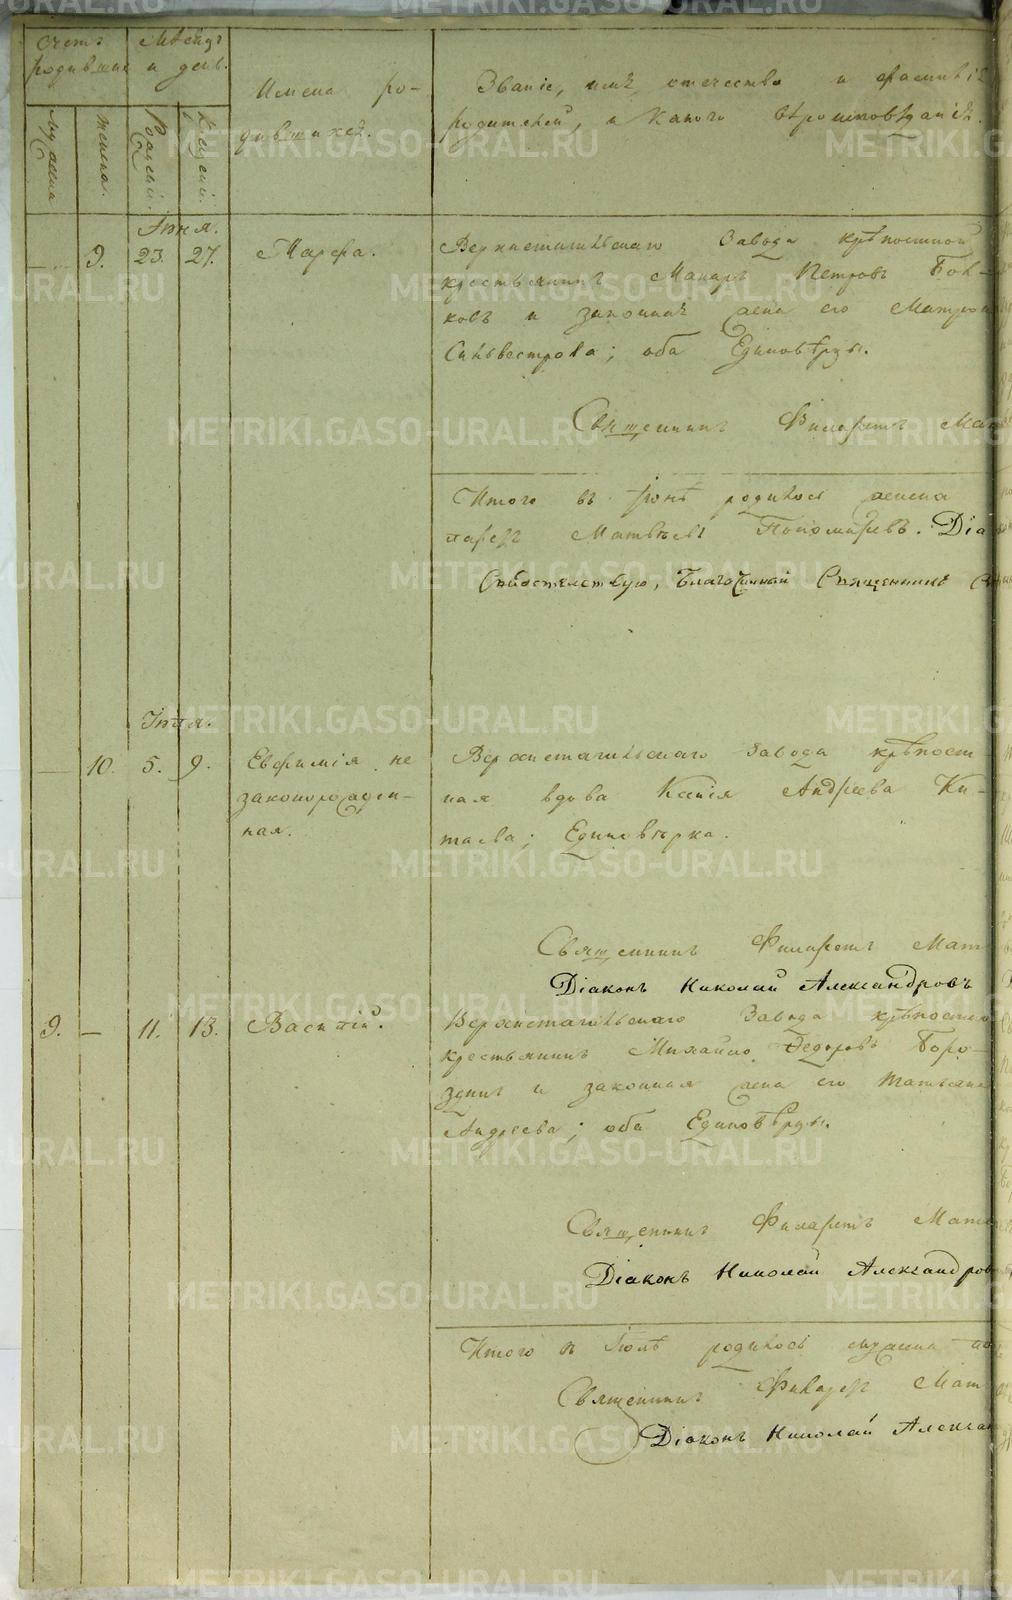 Счетъ родившихся
Мѣсяцъ и день.
Имена родившихся.
Званіе, имя, отечество и фамилія
родителей, и какого вѣроисповѣданія.
Мужеска
Женска.
Рожденія.
Крещенія.
Іюня.
9. 23. 27. Марфа.
Верхнетагильскаго Завода крѣпостной
крестьянинъ Макаръ Петровъ
ковъ и законная жена его
Сильвестрова; оба Единовѣрцы.
Священникъ Филаретъ
Итого въ Іюнѣ родилось женска
Матвѣевъ Пономаревъ.
Свидѣтельствую, Благочинный Священникъ
Іюля.
10. 5. 9. Евфимія не
законорожден-
ная.
Верхнетагильскаго Завода крѣпост
ная вдова Ксенія Андреева Ки-
таева; Единовѣрка.
Священникъ Филаретъ Мат
Діаконъ Николай Александровъ
9. — 11. 13. Василій.
Верхнетагильскаго Завода крѣпостной
крестьянинъ Михайло Федоровъ Боро-
здинъ и законная жена его Татьяна
Андреева; оба Единовѣрцы.
Священникъ Филаретъ Мат
Діаконъ Николай Александров
Итого въ Іюлѣ родилось мужеска
Священникъ Филаретъ Мат
Діаконъ Николай Алексан
METRIKI.GASO-URAL.RU